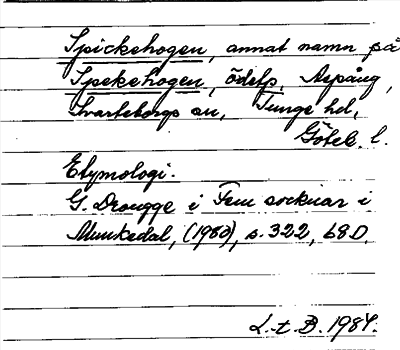 Spickehogen, annat namn på
Spekehogen, ödelp, Aspäng,
Svarteborgs sn, Tunge hd,
Göteb. l.
Etymologi.
G. Drougge i Fem socknar i
Munkedal, (1983), s. 322, 680.
L. t. B. 1984.